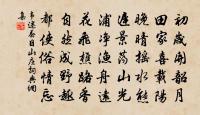 初歲開韶月
田家喜載陽
晚晴搖水態
遲景蕩山光
浦淨漁舟遠
花飛樵路香
自然成野趣
都使俗情忘
韋述春日山莊詞典網
集